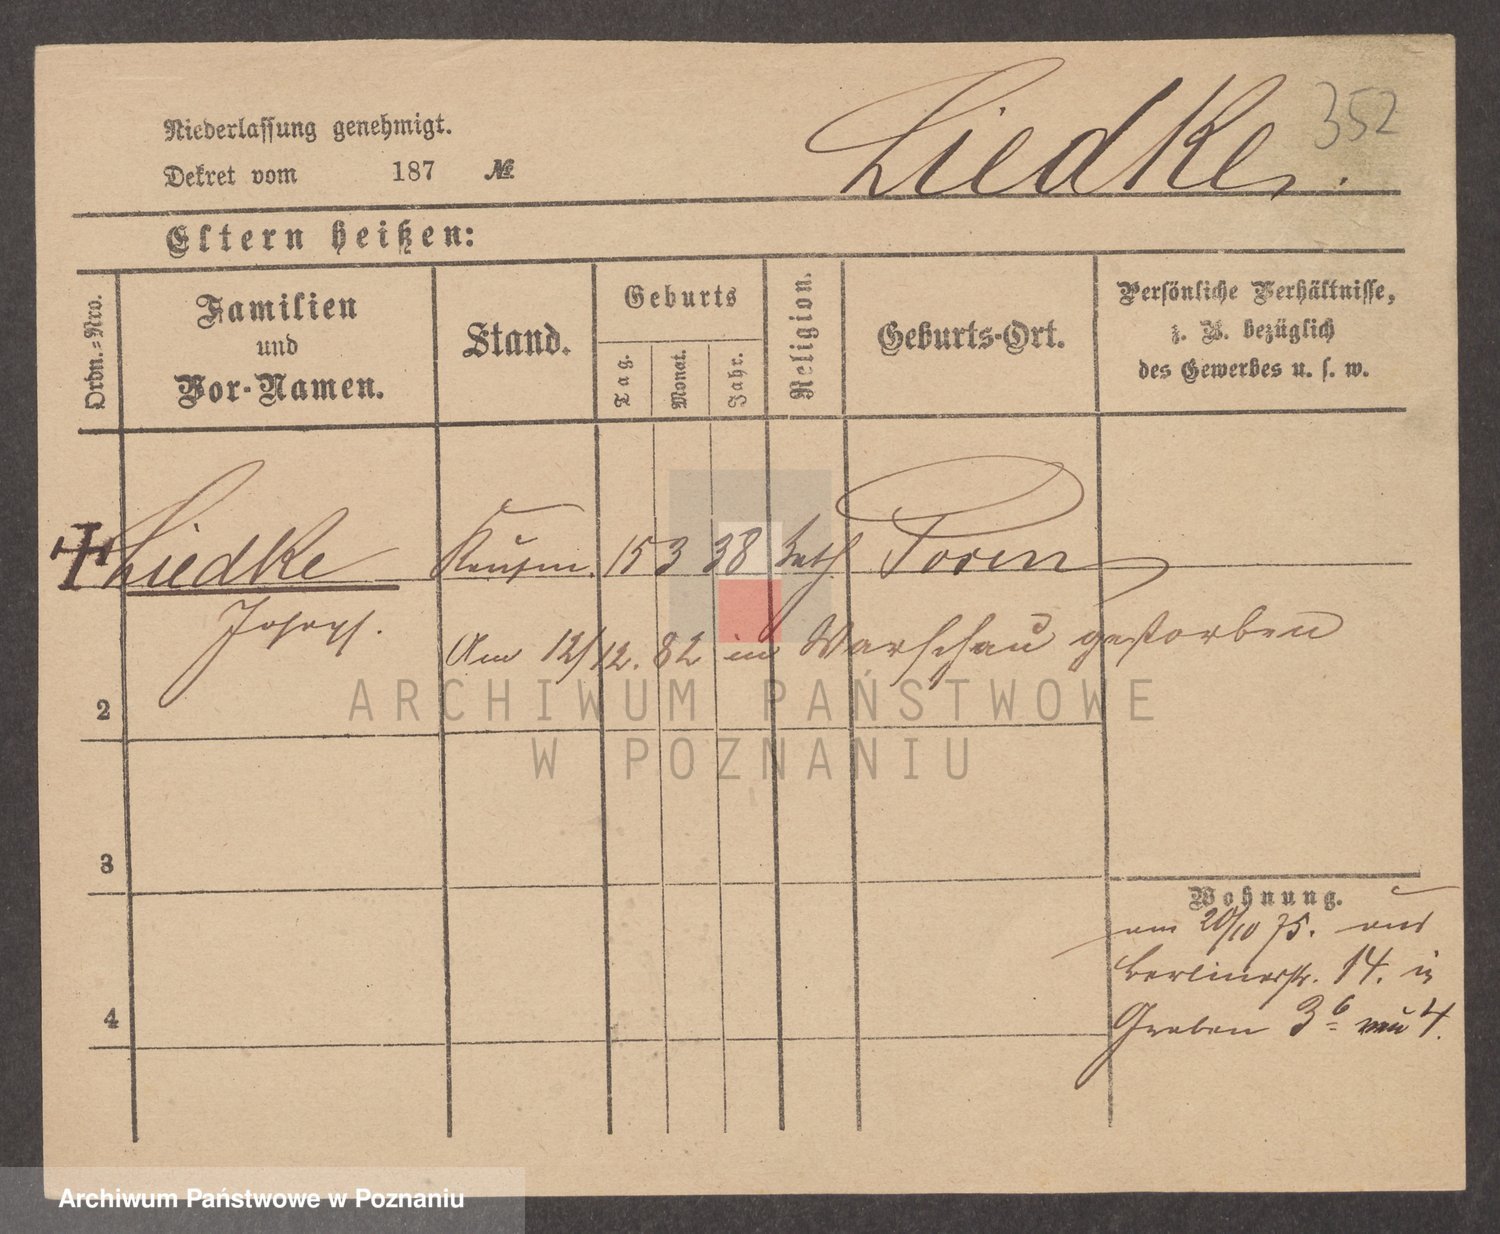 352
Liedke.
Niederlassung genehmigt.
Dekret vom 187 №
Eltern heißen:
Ordn.=Nro.
Familien
und
Vor-Namen.
Stand.
Geburts
Tag.
Monat.
Jahr.
Religion.
Geburts-Ort.
Persönliche Verhältnisse,
z. B. bezüglich
des Gewerbes u. s. w.
Liedke Kaufm. 15 3 38 kath Posen
Joseph.
Am 12/12. 82 in Warschau gestorben
2
3
4
Wohnung.
am 20/10 75. aus
Berlinerstr. 14. in
Graben 3 b neu 4.
ARCHIWUM PAŃSTWOWE
W POZNANIU
Archiwum Państwowe w Poznaniu